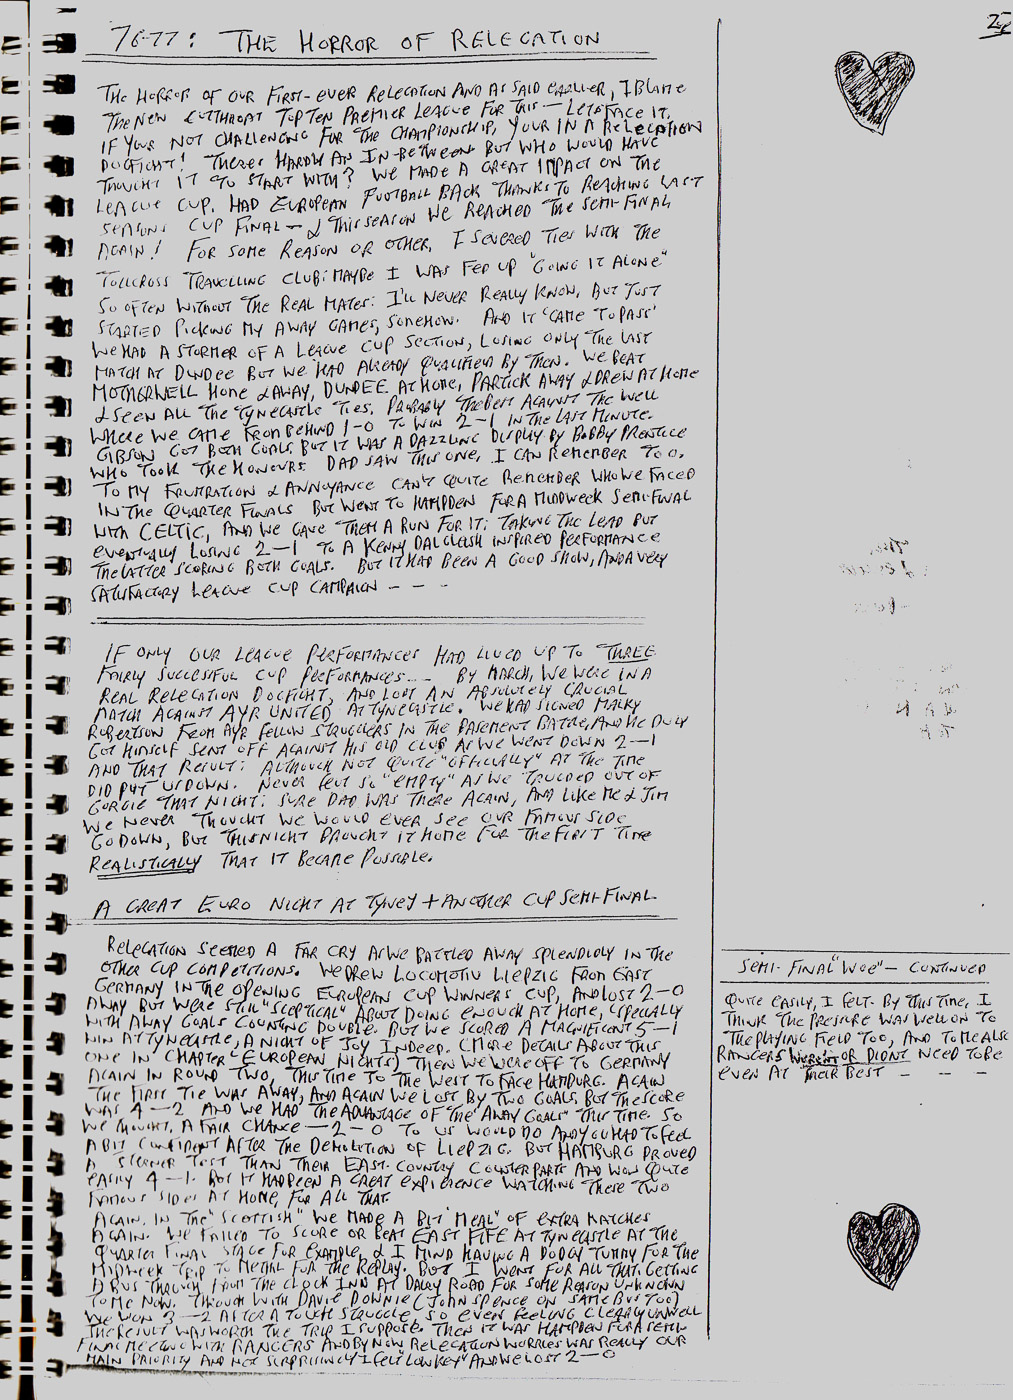 25
76-77: THE HORROR OF RELEGATION
THE HORROR OF OUR FIRST-EVER RELEGATION AND AS SAID EARLIER, I BLAME
THE NEW CUTTHROAT TOP TEN PREMIER LEAGUE FOR THIS — LETS FACE IT,
IF YOUR NOT CHALLENGING FOR THE CHAMPIONSHIP, YOUR IN A RELEGATION
DOGFIGHT! THERES HARDLY AN IN-BETWEEN BUT WHO WOULD HAVE
THOUGHT IT TO START WITH? WE MADE A GREAT IMPACT ON THE
LEAGUE CUP, HAD EUROPEAN FOOTBALL BACK THANKS TO REACHING LAST
SEASONS CUP FINAL — & THIS SEASON WE REACHED THE SEMI-FINAL
AGAIN! FOR SOME REASON OR OTHER, I SEVERED TIES WITH THE
TOLLCROSS TRAVELLING CLUB: MAYBE I WAS FED UP "GOING IT ALONE"
SO OFTEN WITHOUT THE REAL MATES: I'LL NEVER REALLY KNOW, BUT JUST
STARTED PICKING MY AWAY GAMES, SOMEHOW. AND IT 'CAME TO PASS'
WE HAD A STORMER OF A LEAGUE CUP SECTION, LOSING ONLY THE LAST
MATCH AT DUNDEE BUT WE HAD ALREADY QUALIFIED BY THEN. WE BEAT
MOTHERWELL HOME & AWAY, DUNDEE AT HOME, PARTICK AWAY & DREW AT HOME
& SEEN ALL THE TYNECASTLE TIES. PROBABLY THE BEST AGAINST THE WELL
WHERE WE CAME FROM BEHIND 1-0 TO WIN 2-1 IN THE LAST MINUTE.
GIBSON GOT BOTH GOALS BUT IT WAS A DAZZLING DISPLAY BY BOBBY PRENTICE
WHO TOOK THE HONOURS. DAD SAW THIS ONE, I CAN REMEMBER TOO.
TO MY FRUSTRATION & ANNOYANCE CAN'T QUITE REMEMBER WHO WE FACED
IN THE QUARTER FINALS BUT WENT TO HAMPDEN FOR A MIDWEEK SEMI-FINAL
WITH CELTIC, AND WE GAVE THEM A RUN FOR IT: TAKING THE LEAD BUT
EVENTUALLY LOSING 2—1 TO A KENNY DALGLEISH INSPIRED PERFORMANCE
THE LATTER SCORING BOTH GOALS. BUT IT HAD BEEN A GOOD SHOW, AND A VERY
SATISFACTORY LEAGUE CUP CAMPAIGN - - -
IF ONLY OUR LEAGUE PERFORMANCES HAD LIVED UP TO THREE
FAIRLY SUCCESSFUL CUP PERFORMANCES --- BY MARCH, WE WERE IN A
REAL RELEGATION DOGFIGHT, AND LOST AN ABSOLUTELY CRUCIAL
MATCH AGAINST AYR UNITED AT TYNECASTLE. WE HAD SIGNED MALKY
ROBERTSON FROM AYR FELLOW STRUGGLERS IN THE BASEMENT BATTLE, AND HE DULY
GOT HIMSELF SENT OFF AGAINST HIS OLD CLUB AS WE WENT DOWN 2—1
AND THAT RESULT: ALTHOUGH NOT QUITE "OFFICIALLY" AT THE TIME
DID PUT US DOWN. NEVER FELT SO "EMPTY" AS WE TRUDGED OUT OF
GORGIE THAT NIGHT: SURE DAD WAS THERE AGAIN, AND LIKE ME & JIM
WE NEVER THOUGHT WE WOULD EVER SEE OUR FAMOUS SIDE
GO DOWN, BUT THIS NIGHT BROUGHT IT HOME FOR THE FIRST TIME
REALISTICALLY THAT IT BECAME POSSIBLE.
A GREAT EURO NIGHT AT TYNEY + ANOTHER CUP SEMI-FINAL
RELEGATION SEEMED A FAR CRY AS WE BATTLED AWAY SPLENDIDLY IN THE
OTHER CUP COMPETITIONS. WE DREW LOCOMOTIV LIEPZIG FROM EAST
GERMANY IN THE OPENING EUROPEAN CUP WINNERS CUP, AND LOST 2-0
AWAY BUT WERE STILL "SCEPTICAL" ABOUT DOING ENOUGH AT HOME, ESPECIALLY
WITH AWAY GOALS COUNTING DOUBLE. BUT WE SCORED A MAGNIFICENT 5-1
WIN AT TYNECASTLE, A NIGHT OF JOY INDEED. (MORE DETAILS ABOUT THIS
ONE IN CHAPTER "EUROPEAN NIGHTS) THEN WE WERE OFF TO GERMANY
AGAIN IN ROUND TWO, THIS TIME TO THE WEST TO FACE HAMBURG. AGAIN
THE FIRST TIE WAS AWAY, AND AGAIN WE LOST BY TWO GOALS. BUT THE SCORE
WAS 4—2 AND WE HAD THE ADVANTAGE OF THE "AWAY GOALS" THIS TIME. SO
WE THOUGHT, A FAIR CHANCE — 2-0 TO US WOULD DO AND YOU HAD TO FEEL
A BIT CONFIDENT AFTER THE DEMOLITION OF LIEPZIG. BUT HAMBURG PROVED
A STERNER TEST THAN THEIR EAST-COUNTRY COUNTERPARTS AND WON QUITE
EASILY 4—1. BUT IT HAD BEEN A GREAT EXPERIENCE WATCHING THESE TWO
FAMOUS SIDES AT HOME, FOR ALL THAT.
AGAIN, IN THE "SCOTTISH" WE MADE A BIT "MEAL" OF EXTRA MATCHES
AGAIN. WE FAILED TO SCORE OR BEAT EAST FIFE AT TYNECASTLE AT THE
QUARTER FINAL STAGE FOR EXAMPLE, & I MIND HAVING A DODGY TUMMY FOR THE
MIDWEEK TRIP TO METHIL FOR THE REPLAY. BUT I WENT FOR ALL THAT. GETTING
A BUS THROUGH FROM THE CLOCK INN AT DALRY ROAD FOR SOME REASON UNKNOWN
TO ME NOW. THOUGH WITH DAVIE DOWNIE (JOHN SPENCE ON SAME BUS TOO)
WE WON 3—2 AFTER A TOUGH STRUGGLE, SO EVEN FEELING CLEARLY UNWELL
THE RESULT WAS WORTH THE TRIP I SUPPOSE. THEN IT WAS HAMPDEN FOR A SEMI-
FINAL MEETING WITH RANGERS AND BY NOW RELEGATION WORRIES WAS REALLY OUR
MAIN PRIORITY AND NOT SURPRISINGLY I FELT "LOW KEY" AND WE LOST 2—0
SEMI-FINAL "WOE" — CONTINUED
QUITE EASILY, I FELT. BY THIS TIME, I
THINK THE PRESSURE WAS WELL ON TO
THE PLAYING FIELD TOO, AND TO ME ALSO
RANGERS WEREN'T OR DIDNT NEED TO BE
EVEN AT THEIR BEST - - -